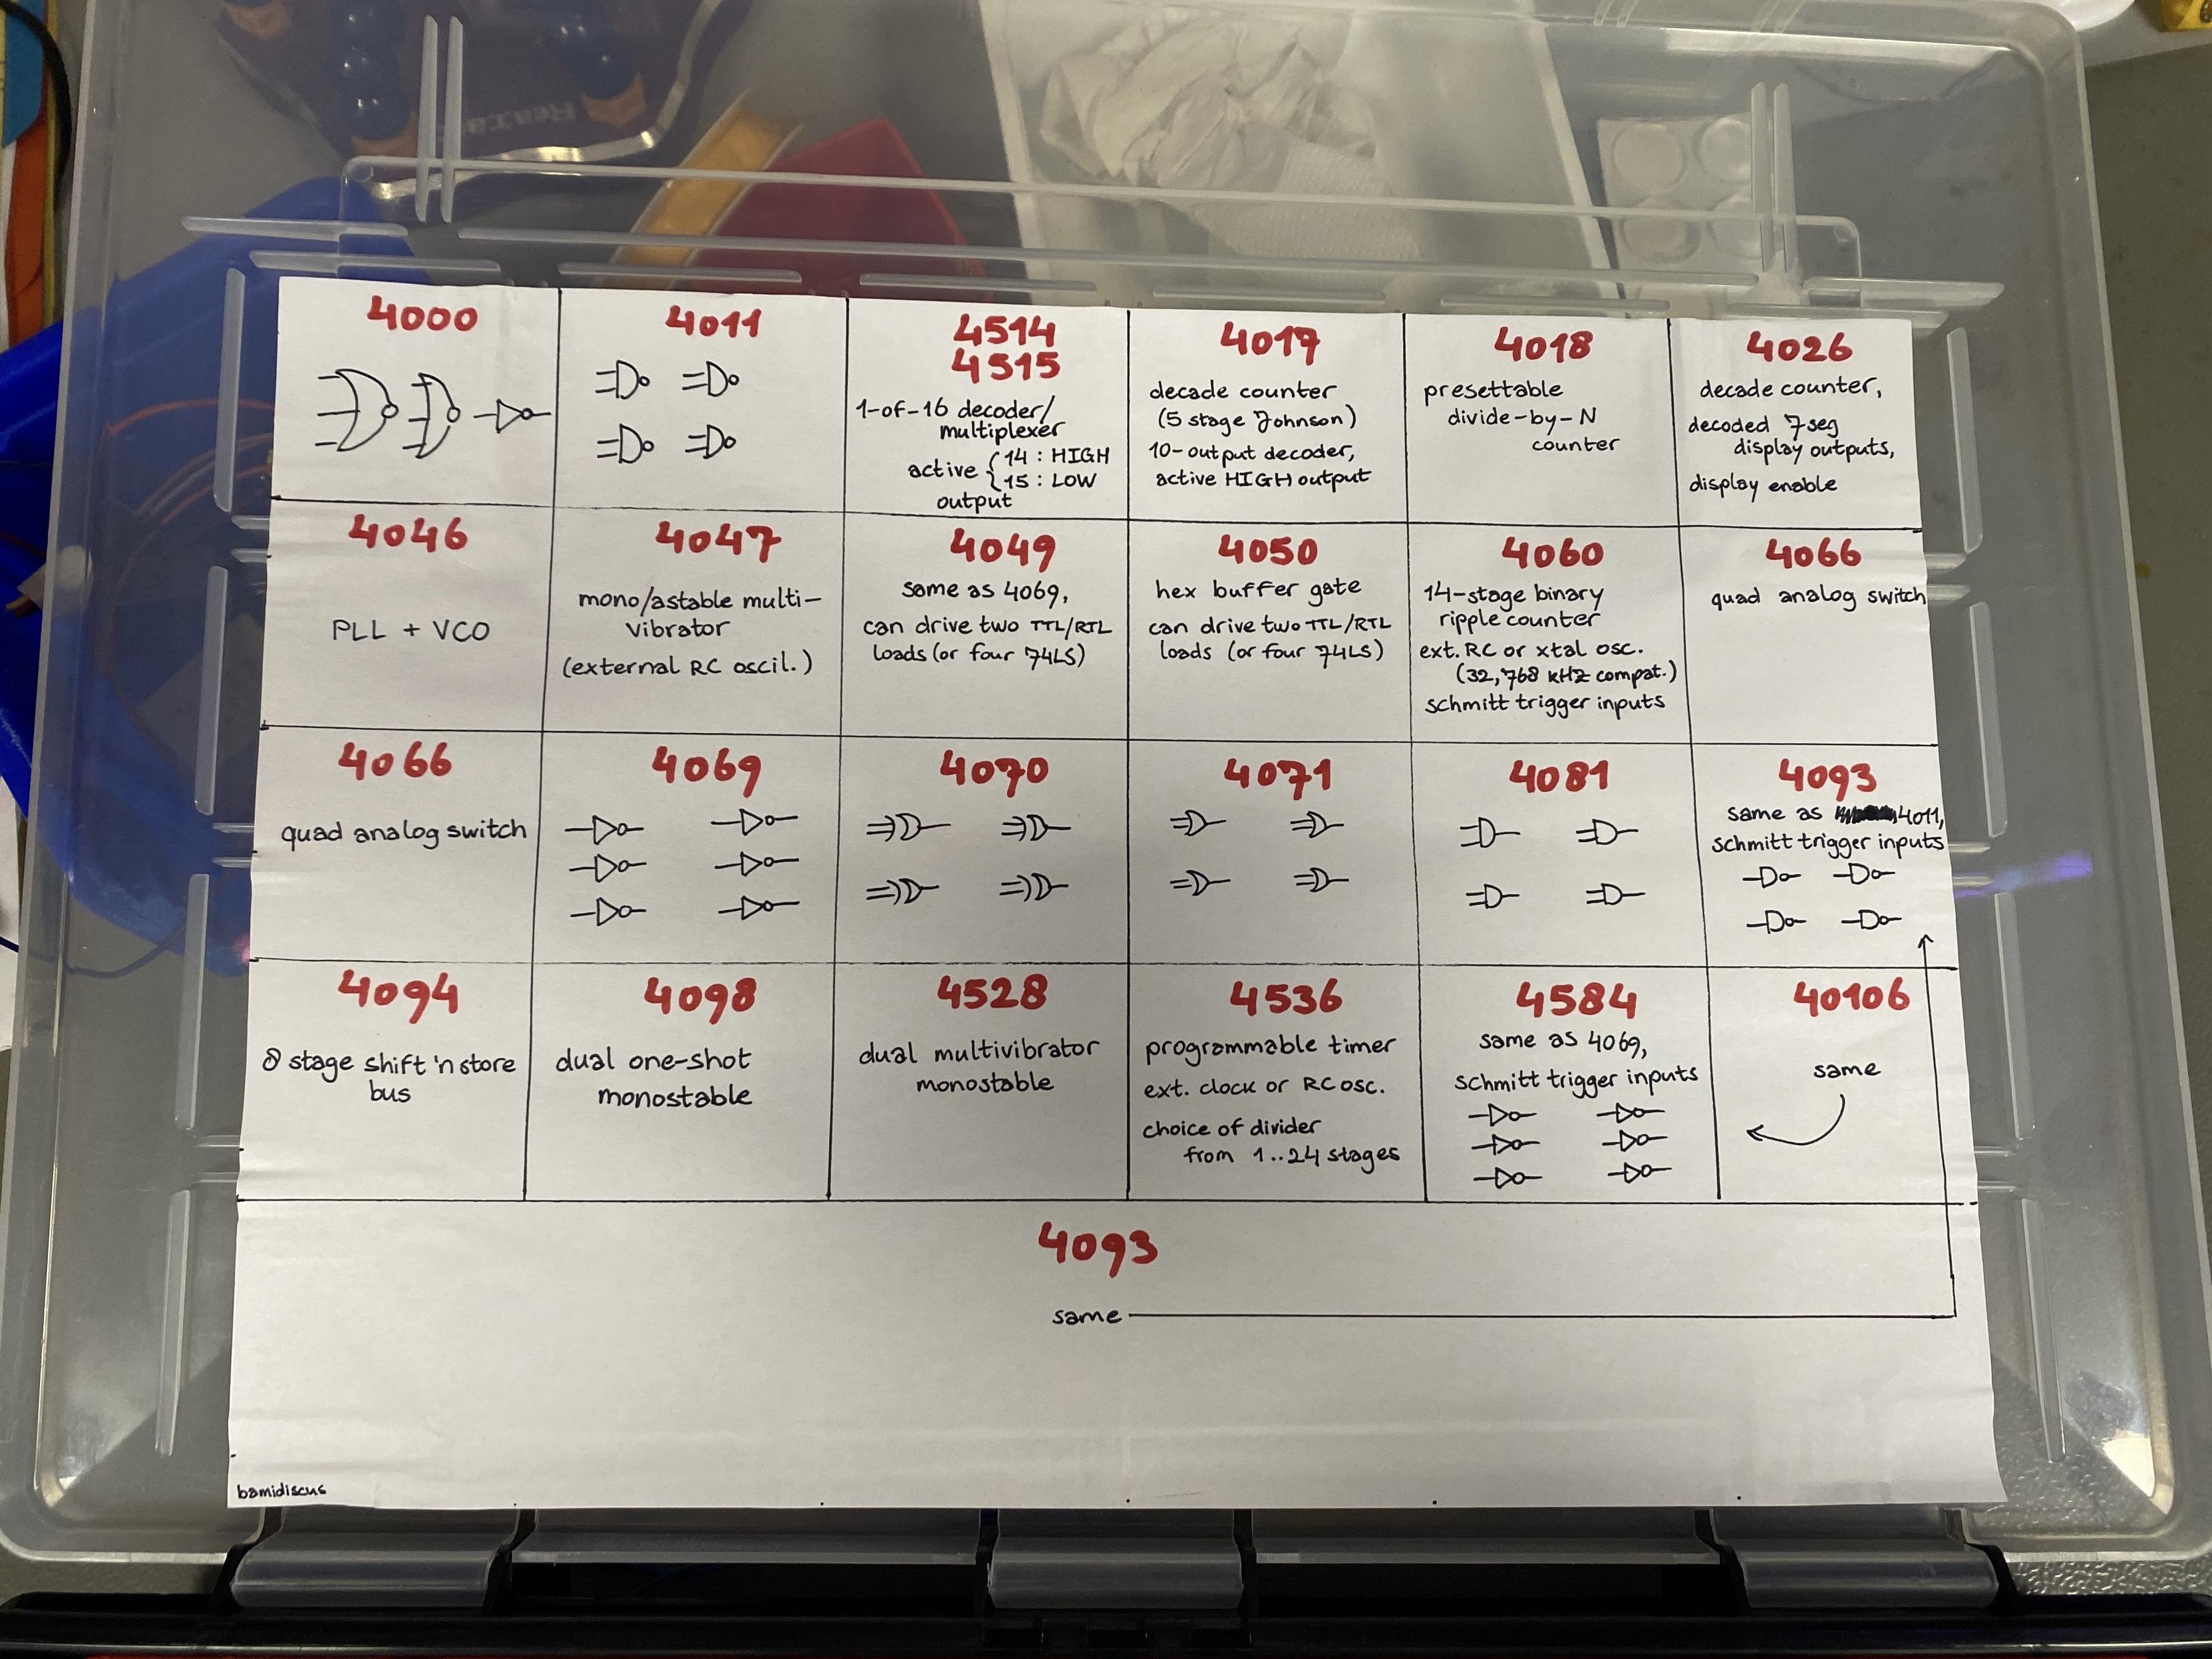 4000
4011
4514
4515
1-of-16 decoder/
multiplexer
active { 14 : HIGH
15 : LOW
output
4017
decade counter
(5 stage Johnson)
10-output decoder,
active HIGH output
4018
presettable
divide-by-N
counter
4026
decade counter,
decoded 7seg
display outputs,
display enable
4046
PLL + VCO
4047
mono/astable multi-
vibrator
(external RC oscil.)
4049
same as 4069,
can drive two TTL/RTL
loads (or four 74LS)
4050
hex buffer gate
can drive two TTL/RTL
loads (or four 74LS)
4060
14-stage binary
ripple counter
ext. RC or xtal osc.
(32,768 kHz compat.)
schmitt trigger inputs
4066
quad analog switch
4066
quad analog switch
4069
4070
4071
4081
4093
same as 4011,
schmitt trigger inputs
4094
8 stage shift 'n store
bus
4098
dual one-shot
monostable
4528
dual multivibrator
monostable
4536
programmable timer
ext. clock or RC osc.
choice of divider
from 1..24 stages
4584
same as 4069,
schmitt trigger inputs
40106
same
4093
same
bamidiscus